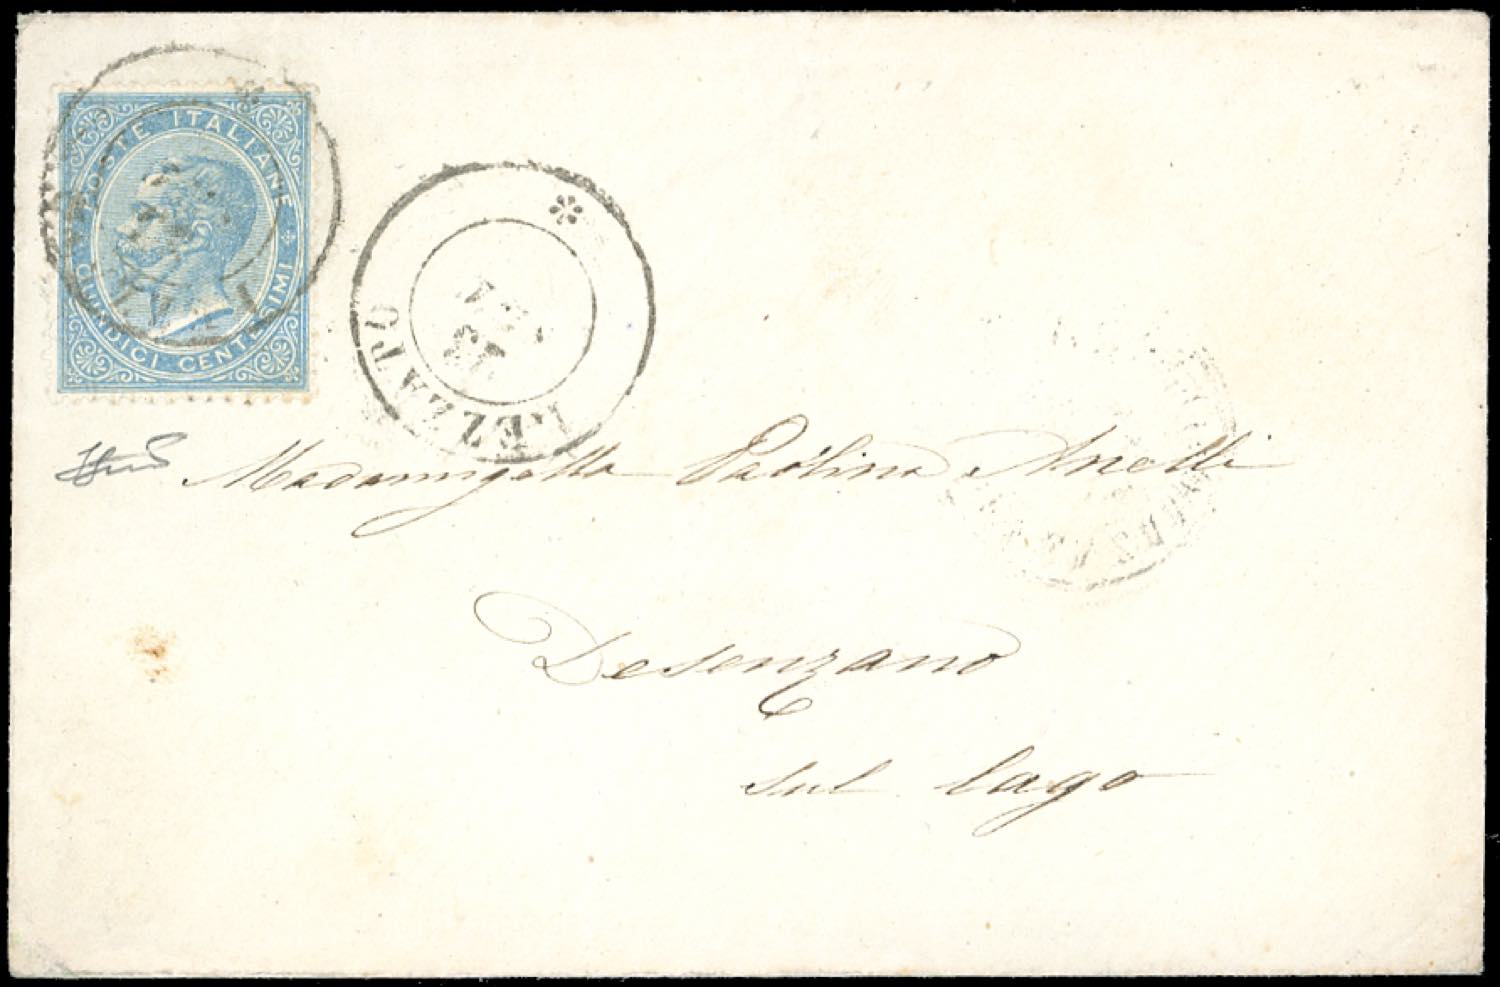 POSTE ITALIANE
QUINDICI CENTESIMI
REZZATO
13
Madamigella Paolina Anelli
Desenzano
sul lago